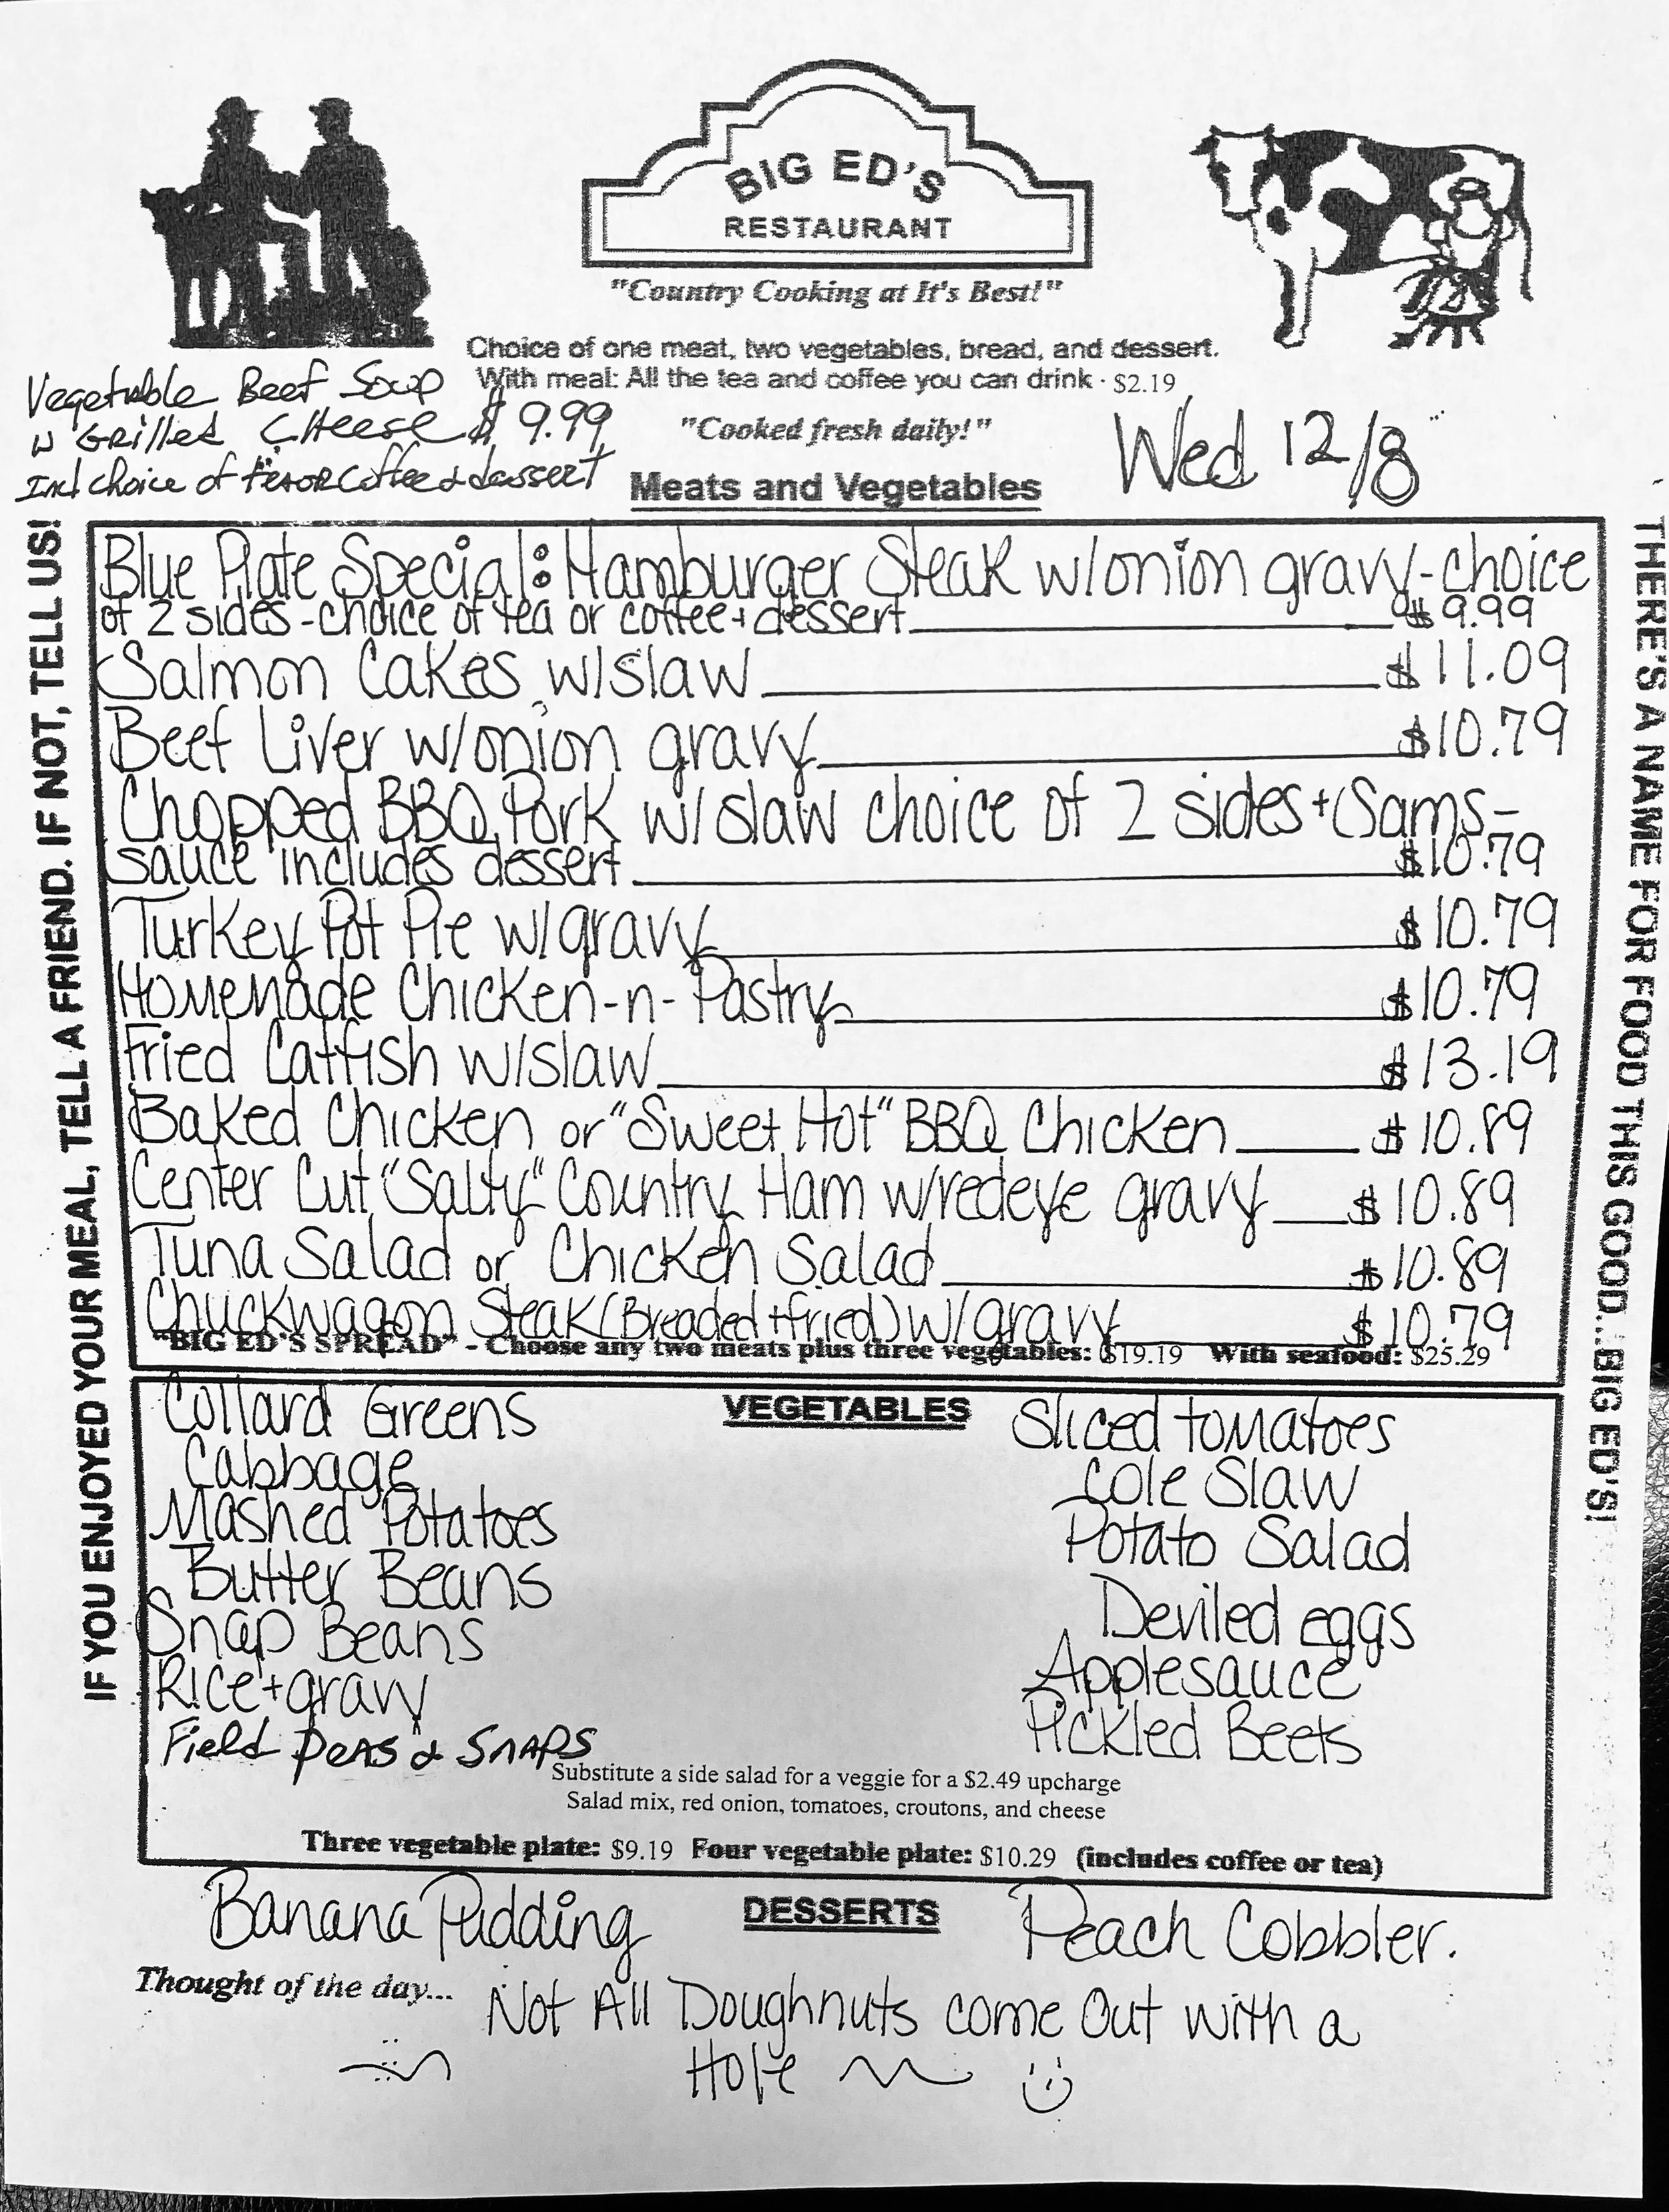 BIG ED'S
RESTAURANT
"Country Cooking at It's Best!"
Choice of one meat, two vegetables, bread, and dessert.
With meal: All the tea and coffee you can drink · $2.19
"Cooked fresh daily!"
Vegetable Beef Soup
w Grilled Cheese $ 9.99
Incl choice of tea or coffee & dessert
Wed 12/8
Meats and Vegetables
Blue Plate Special: Hamburger Steak w/onion gravy-choice
of 2 sides-choice of tea or coffee + dessert $9.99
Salmon Cakes w/slaw $11.09
Beef Liver w/onion gravy $10.79
Chopped BBQ Pork w/slaw choice of 2 sides + (Sams-
sauce includes dessert $10.79
Turkey Pot Pie w/gravy $10.79
Homemade Chicken-n-Pastry $10.79
Fried Catfish w/slaw $13.19
Baked Chicken or "Sweet Hot" BBQ Chicken $10.89
Center Cut "Salty" Country Ham w/redeye gravy $10.89
Tuna Salad or Chicken Salad $10.89
Chuckwagon Steak (Breaded + fried) w/gravy $10.79
"BIG ED'S SPREAD" - Choose any two meats plus three vegetables: $19.19 With seafood: $25.29
VEGETABLES
Collard Greens
Cabbage
Mashed Potatoes
Butter Beans
Snap Beans
Rice + gravy
Field Peas & Snaps
Sliced tomatoes
Cole Slaw
Potato Salad
Deviled eggs
Applesauce
Pickled Beets
Substitute a side salad for a veggie for a $2.49 upcharge
Salad mix, red onion, tomatoes, croutons, and cheese
Three vegetable plate: $9.19 Four vegetable plate: $10.29 (includes coffee or tea)
DESSERTS
Banana Pudding
Peach Cobbler.
Thought of the day... Not All Doughnuts come Out with a
Hole
IF YOU ENJOYED YOUR MEAL, TELL A FRIEND. IF NOT, TELL US!
THERE'S A NAME FOR FOOD THIS GOOD...BIG ED'S!